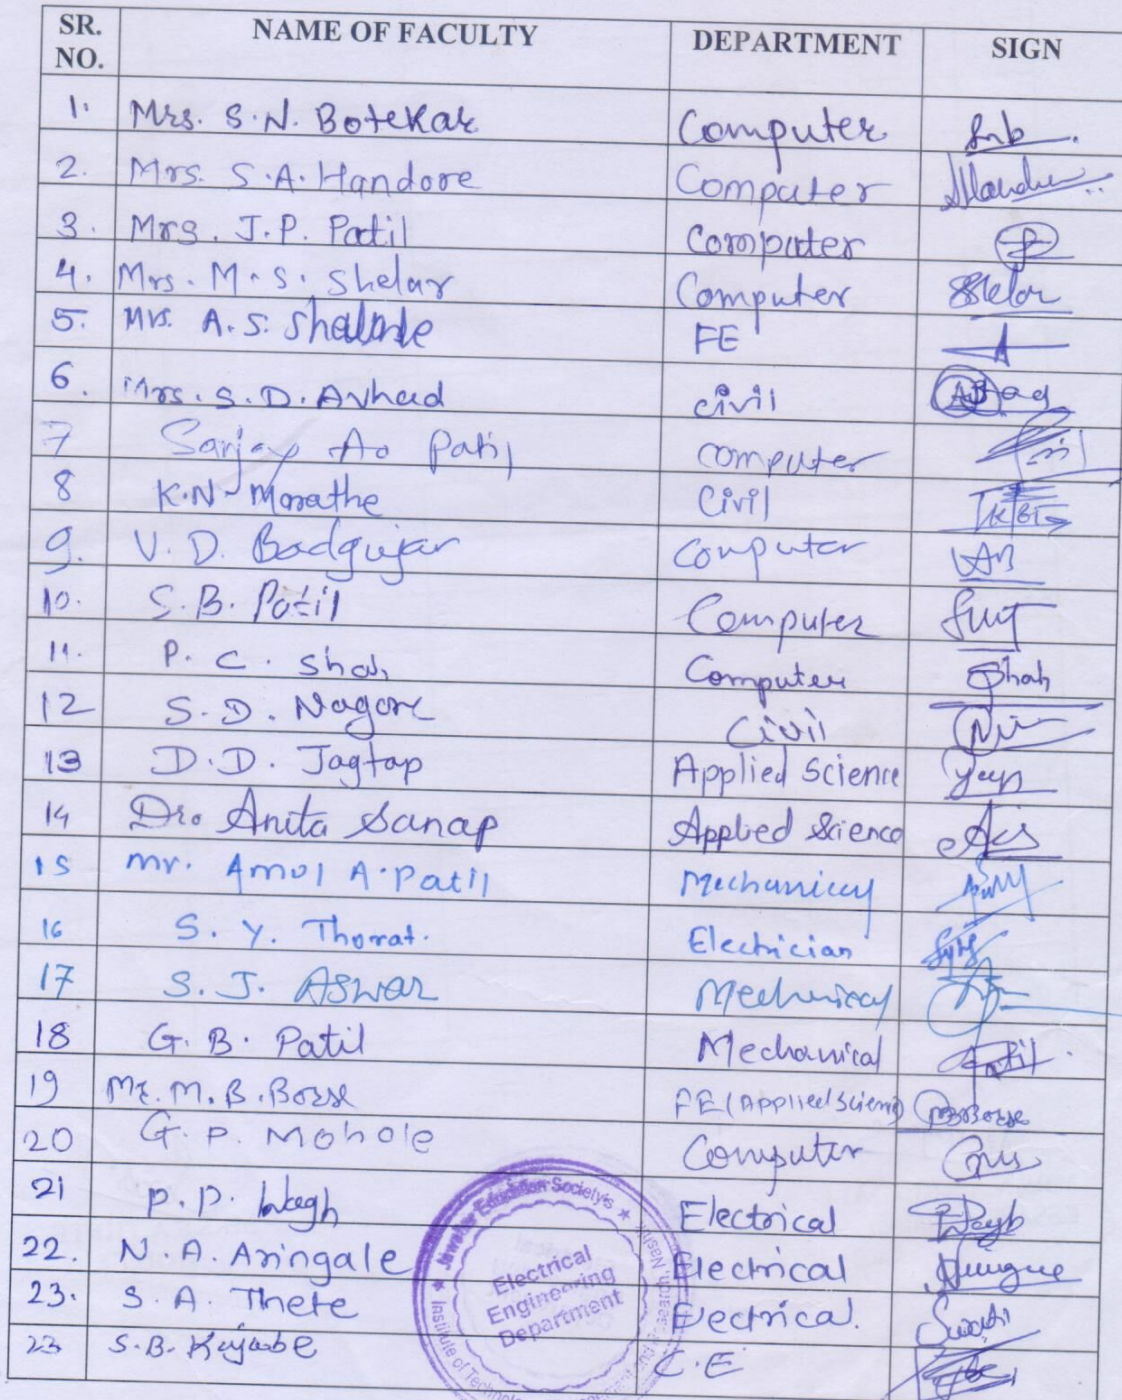 SR. NO. NAME OF FACULTY DEPARTMENT SIGN
1. Mrs. S.N. Botekar Computer
2. Mrs. S.A. Handore Computer
3. Mrs. J.P. Patil Computer
4. Mrs. M.S. Shelar Computer Shelar
5. Mrs. A.S. FE
6. Mrs. S.D. Avhad civil
7 Sanjay Patil computer
8 K.N. Marathe Civil
9. V.D. Badgujar Computer
10. S.B. Patil Computer
11. P.C. Shah Computer Shah
12 S.D. Nagore Civil
13 D.D. Jagtap Applied Science
14 Dr. Anita Sanap Applied Science
15 Mr. Amol A. Patil Mechanical
16 S.Y. Thorat. Electrician
17 S.J. Aswar Mechanical
18 G.B. Patil Mechanical Patil
19 Mr. M.B. Borse FE (Applied Science) MBBorse
20 G.P. Mohole Computer
21 P.P. Wagh Electrical
22. N.A. Aringale Electrical
23. S.A. Thete Electrical. Swati
23 S.B. C.E
Education Society's
Electrical
Engineering
Department
Institute of